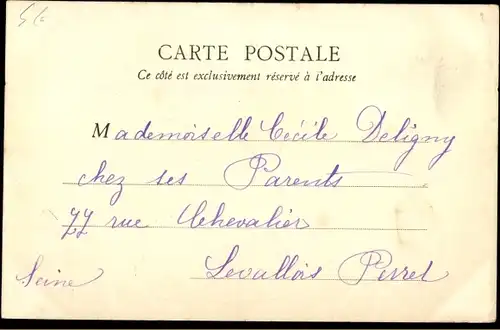 CARTE POSTALE
Ce côté est exclusivement réservé à l'adresse
Mademoiselle Cécile Deligny
chez ses Parents
77 rue Chevalier
Levallois Perret
Seine